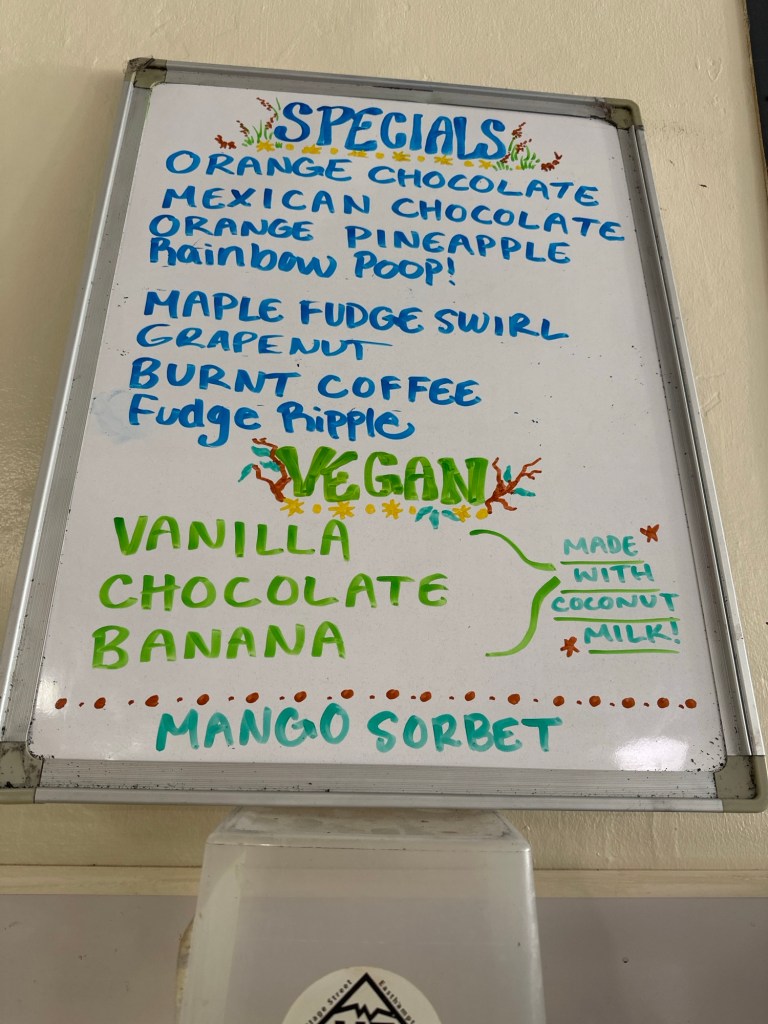 SPECIALS
ORANGE CHOCOLATE
MEXICAN CHOCOLATE
ORANGE PINEAPPLE
Rainbow Poop!
MAPLE FUDGE SWIRL
GRAPENUT
BURNT COFFEE
Fudge Ripple
VEGAN
VANILLA
CHOCOLATE
BANANA
MADE
WITH
COCONUT
MILK!
MANGO SORBET